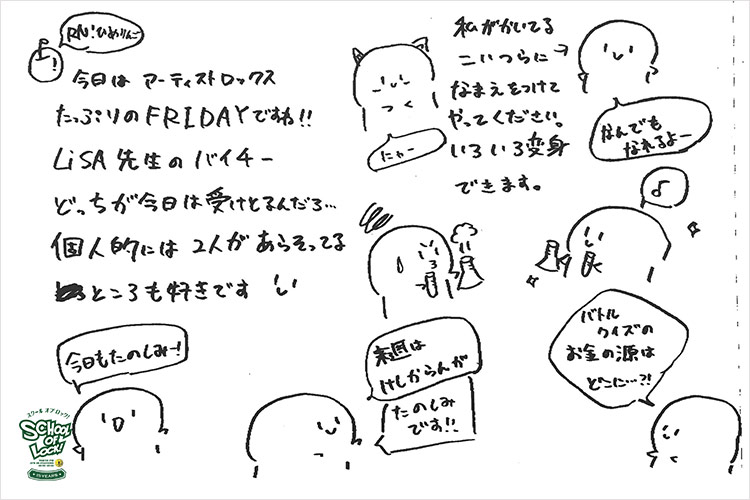 RN!ひめりんご
今日は アーティストロックス
たっぷりのFRIDAYですね!!
LiSA先生のバイチー
どっちが今日は受けとるんだろ…
個人的には 2人があらそってる
ところも好きです
私がかいてる
こいつらに→
なまえをつけて
やってください。
いろいろ変身
できます。
にゃー
なんでも
なれるよー
♪
今日もたのしみー!
来週は
けしからんが
たのしみ
です!!
バトル
クイズの
お金の源は
どこに…?!
スクールオブロック!
SCHOOL
OF
LOCK!